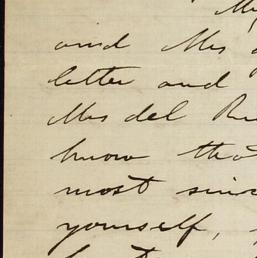 My
and Mrs
letter and
Mrs del
know
most
yourself,